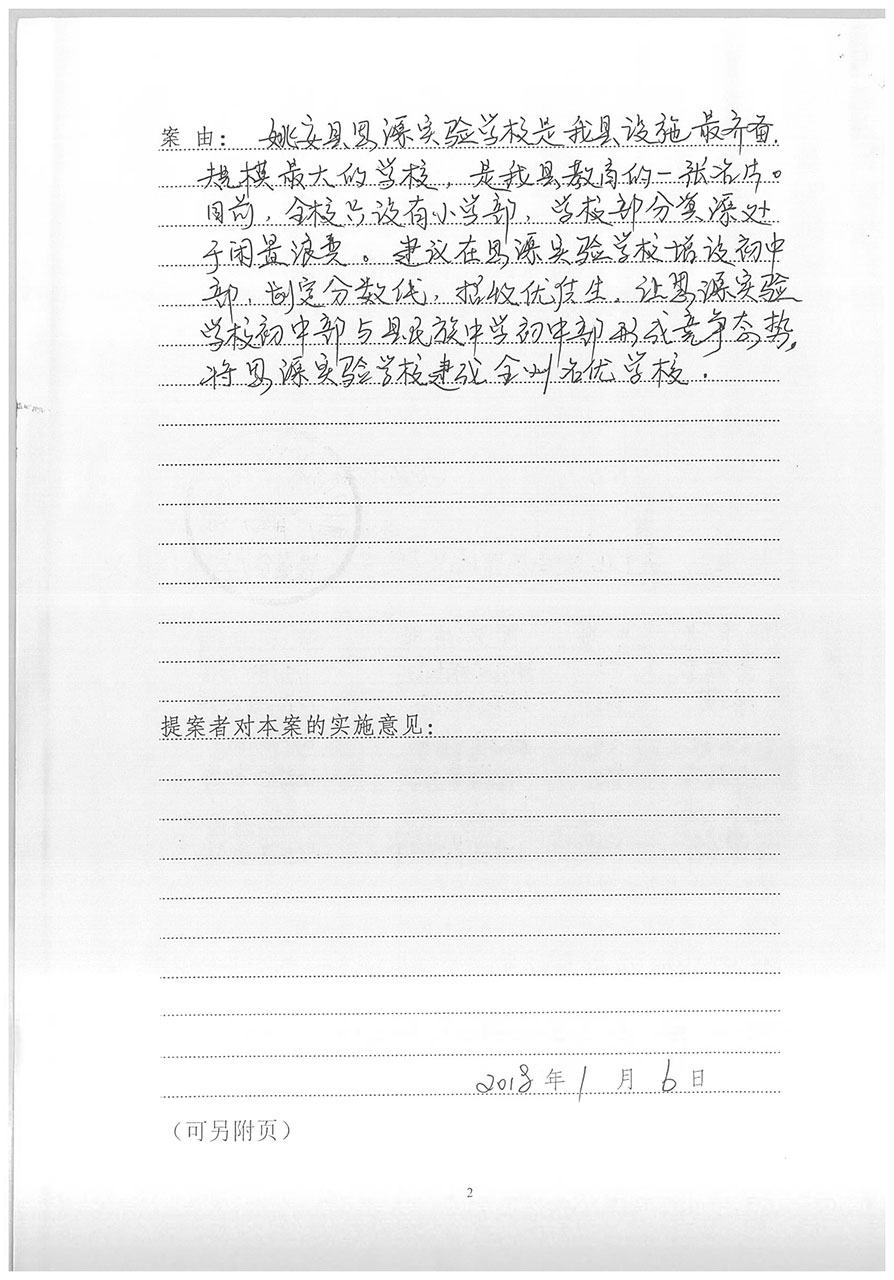 案由：姚安县思源实验学校是我县设施最齐备.
规模最大的学校，是我县教育的一张名片。
目前，全校只设有小学部，学校部分资源处
于闲置浪费。建议在思源实验学校增设初中
部，划定分数线，招收优质生。让思源实验
学校初中部与县民族中学初中部形成竞争态势，
将思源实验学校建成全州名优学校.
提案者对本案的实施意见：
2018年1月6日
（可另附页）
2